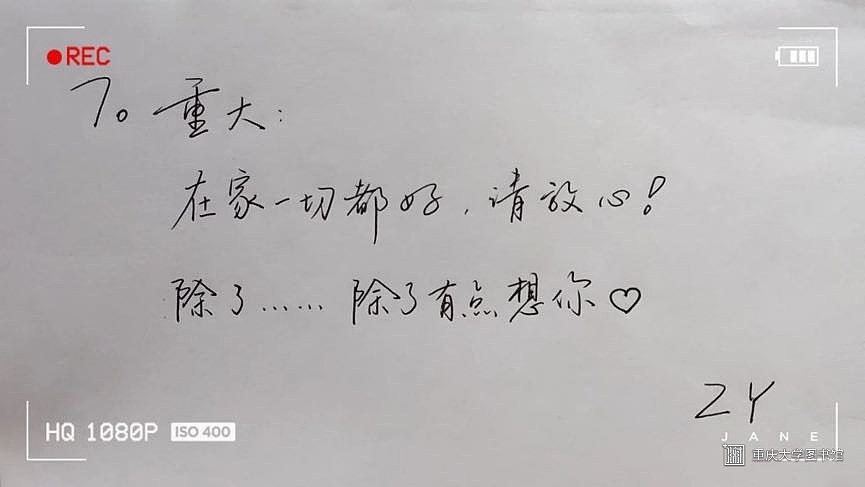 REC
To 重大:
在家一切都好,请放心!
除了…… 除了有点想你♡
ZY
HQ 1080P ISO 400
JANE
重庆大学图书馆